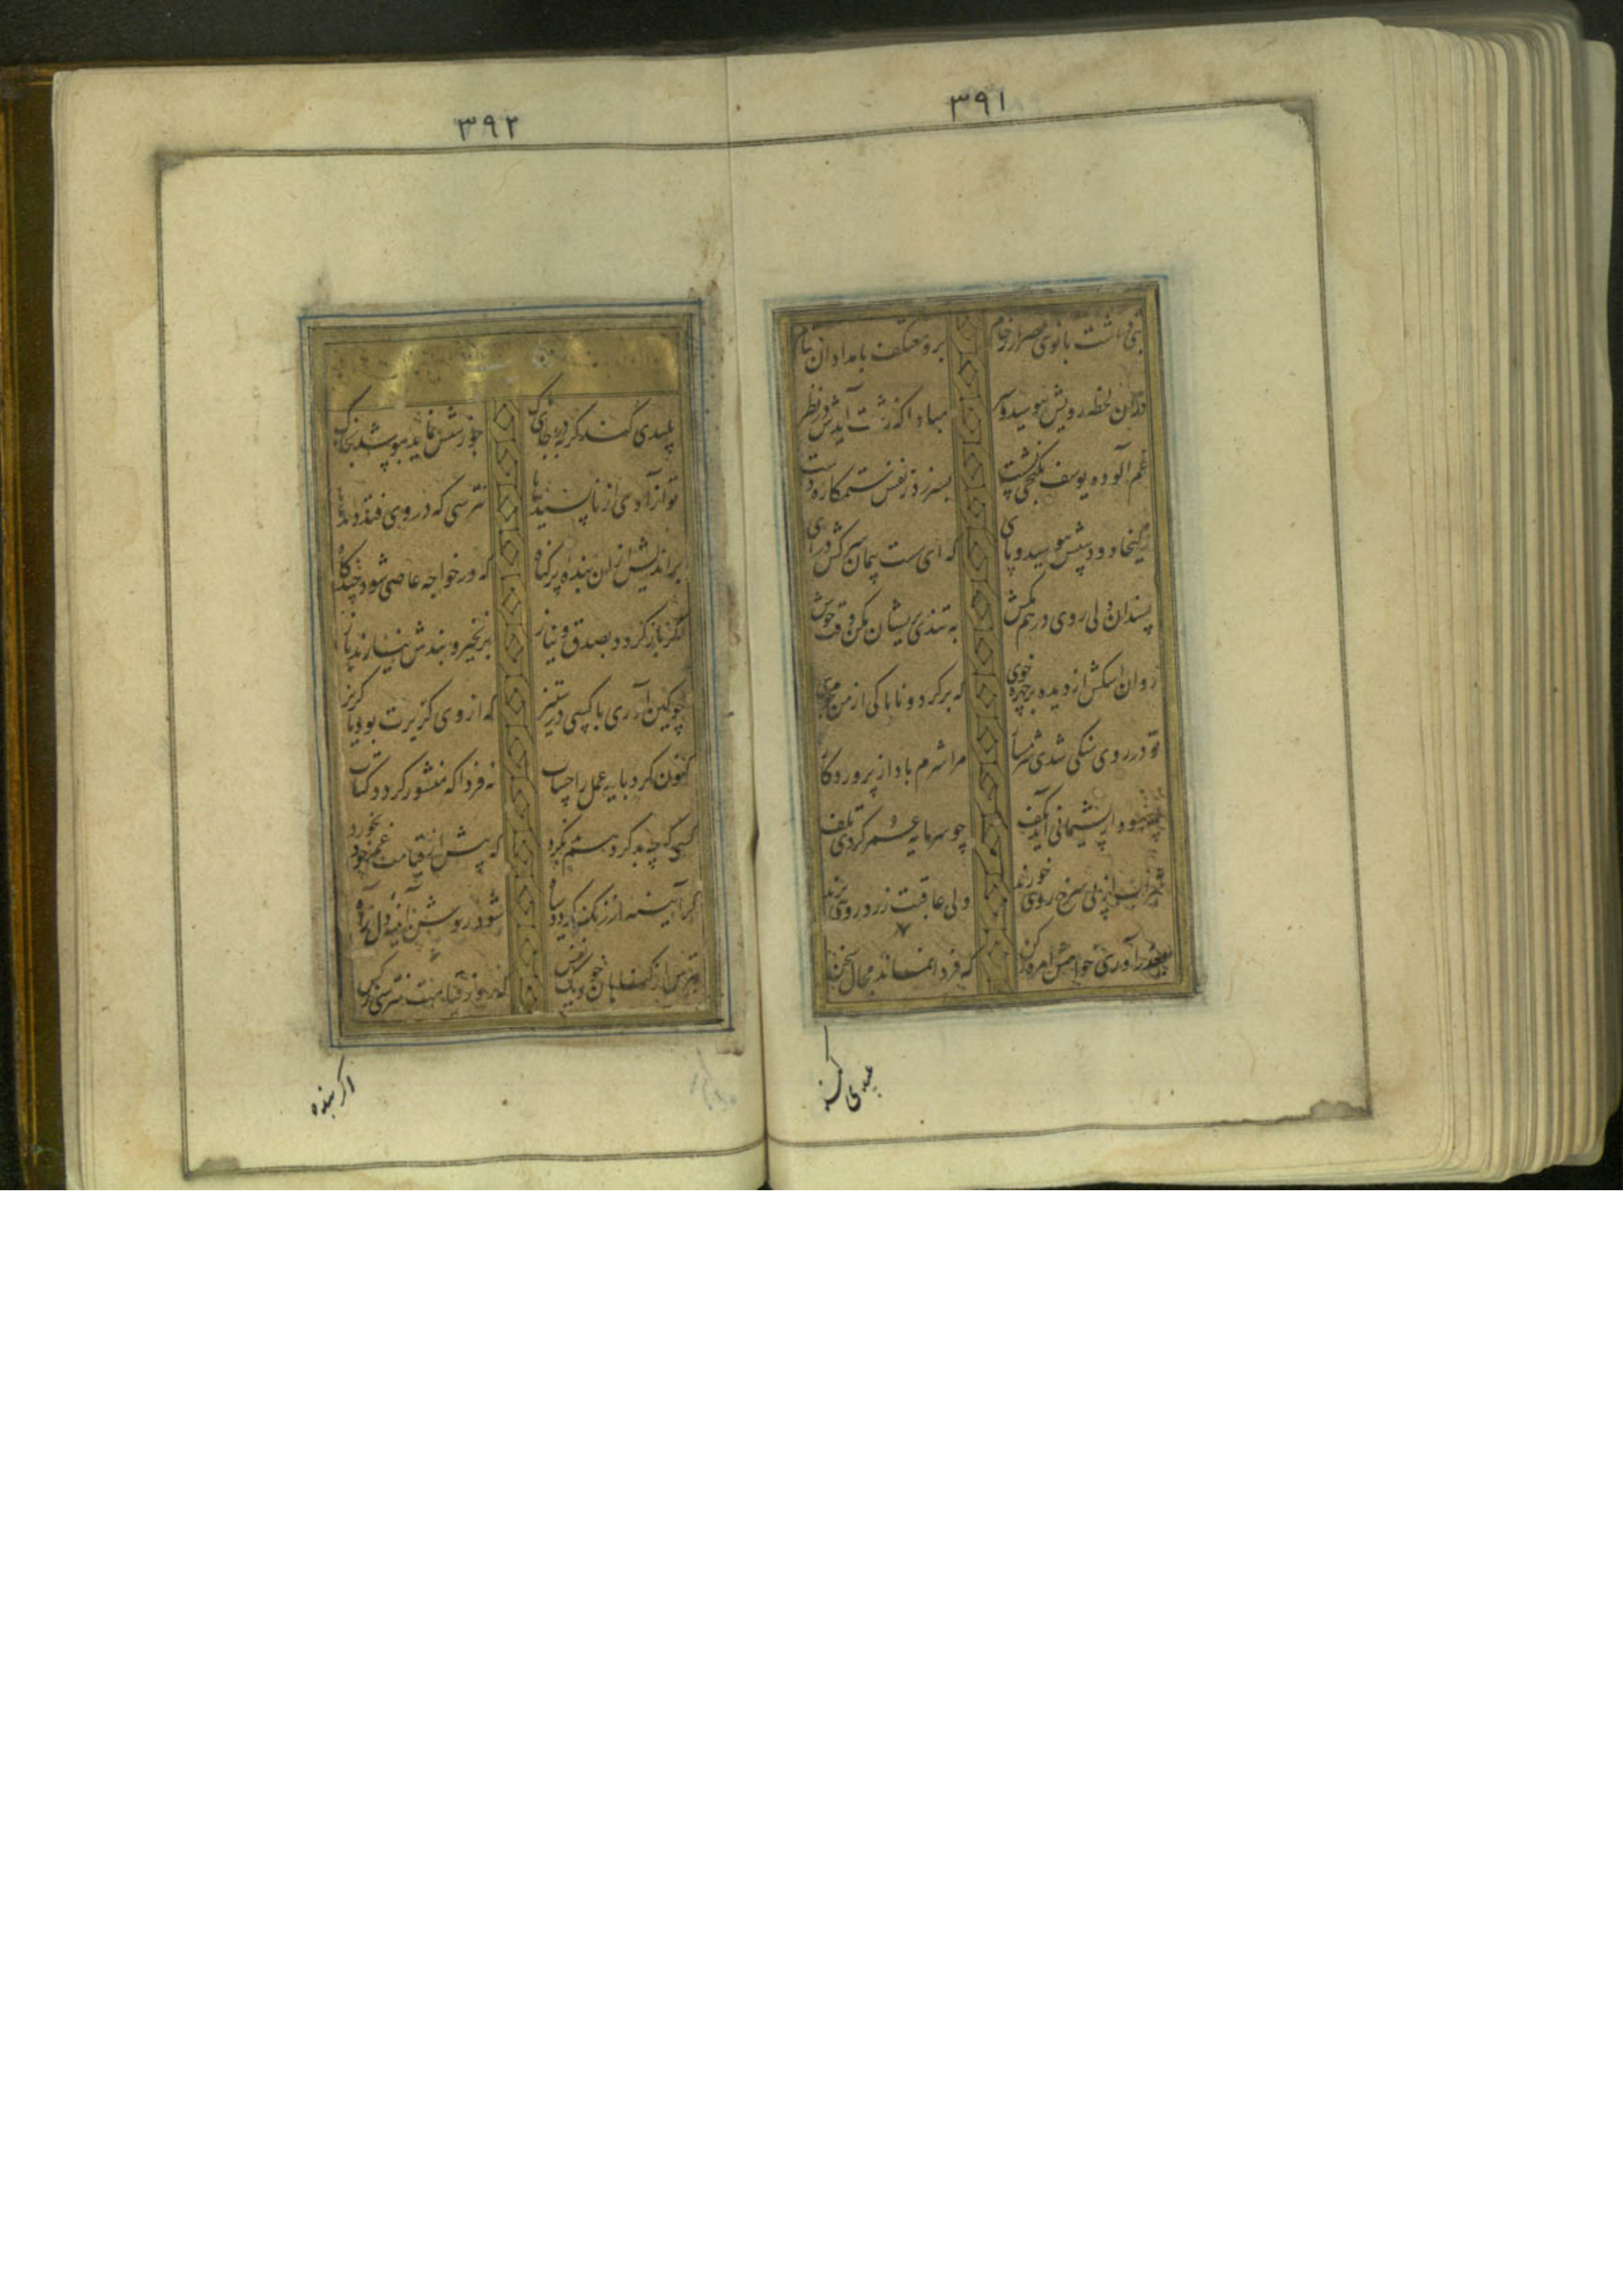 ۳۹۱
بتی داشت بانوی مصر از رخام برو معتکف بامدادان و شام
در آن لحظه رویش بپوشید و سر مبادا که زشت آیدش در نظر
غم آلوده یوسف بکنجی نشست بسر بر ز نفس ستمکاره دست
زلیخا دو دستش ببوسید و پای که ای سست پیمان سرکش درآی
بسندان دلی روی در هم مکش به تندی پریشان مکن وقت خوش
روان اشکش از دیده بر چهره جوی که برگرد و ناپاکی از من مجوی
تو در روی سنگی شدی شرمسار مرا شرم باد از پروردگار
چه سود از پشیمانی آید بکف چو سرمایه عمر کردی تلف
شراب از پی سرخ رویی خورند ولی عاقبت زرد رویی برند
بعذر آوری خواهش امروز کن که فردا نماند مجال سخن
پلیدی کند
۳۹۲
پلیدی کند گربه در جای پاک چو زشتش نماید بپوشد بخاک
تو آزادی از ناپسندیدها نترسی که در وی فتد دیدها
براندیش از آن بنده پر گناه که در خواجه عاصی شود چندگاه
اگر باز گردد بصدق و نیاز بزنجیر و بندش نیارند باز
چو کین آوری با کسی در ستیز که از وی گزیرت بود یا گریز
کنون کرد باید عمل را حساب نه فردا که منشور گردد کتاب
کسی گرچه بد کرد هم بد نکرد که پیش از قیامت غم خود بخورد
گر آیینه از زنگ گردد سیاه شود روشن آیینه دل ز آه
بترس از گناهان خویش این نفس که روز قیامت نترسی ز کس
اگر بنده